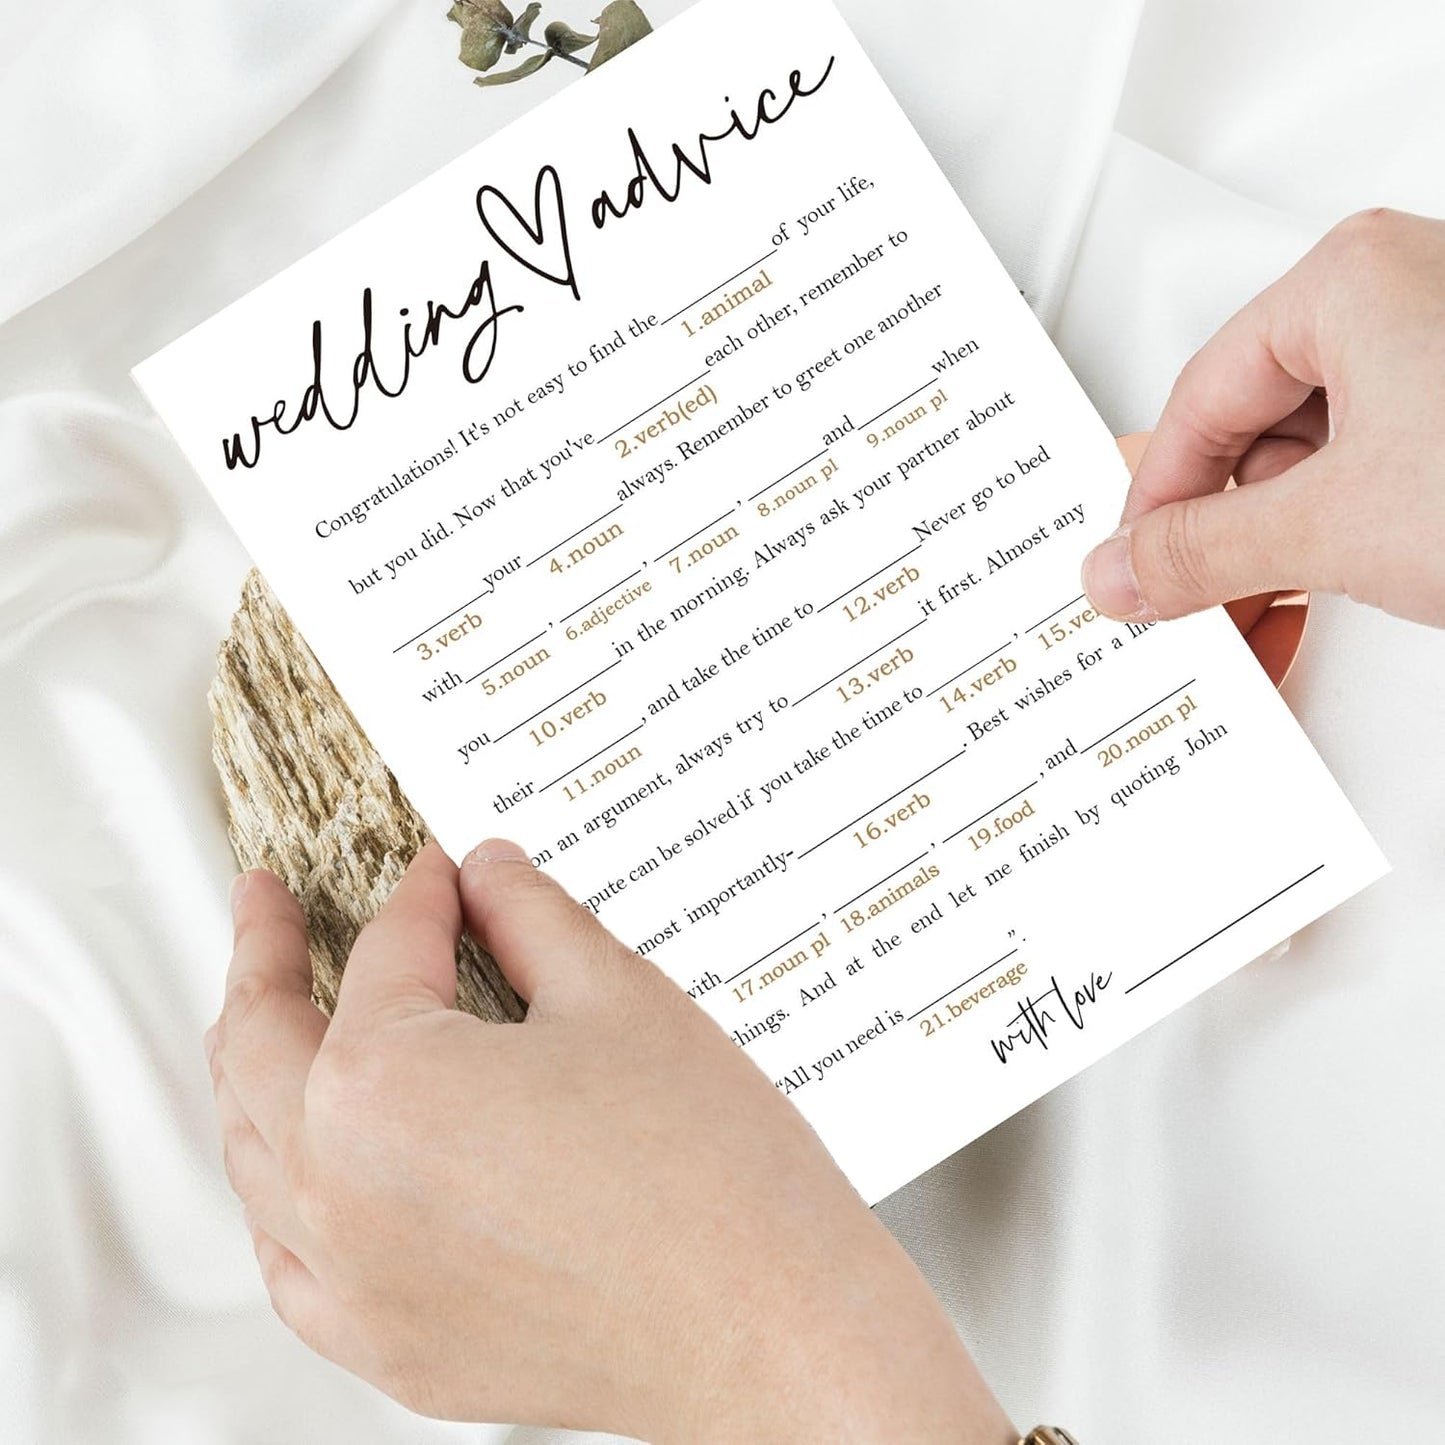 wedding advice
Congratulations! It's not easy to find the____of your life,
1.animal
but you did. Now that you've____each other, remember to
2.verb(ed)
____your____always. Remember to greet one another
3.verb 4.noun
with____,____,____,____and____when
5.noun 6.adjective 7.noun 8.noun pl 9.noun pl
you____in the morning. Always ask your partner about
10.verb
their____, and take the time to____Never go to bed
11.noun 12.verb
on an argument, always try to____it first. Almost any
13.verb
spute can be solved if you take the time to____,____
14.verb 15.ve
most importantly-____. Best wishes for a
16.verb
with____,____,____, and____
17.noun pl 18.animals 19.food 20.noun pl
things. And at the end let me finish by quoting John
“All you need is____”.
21.beverage
with love____